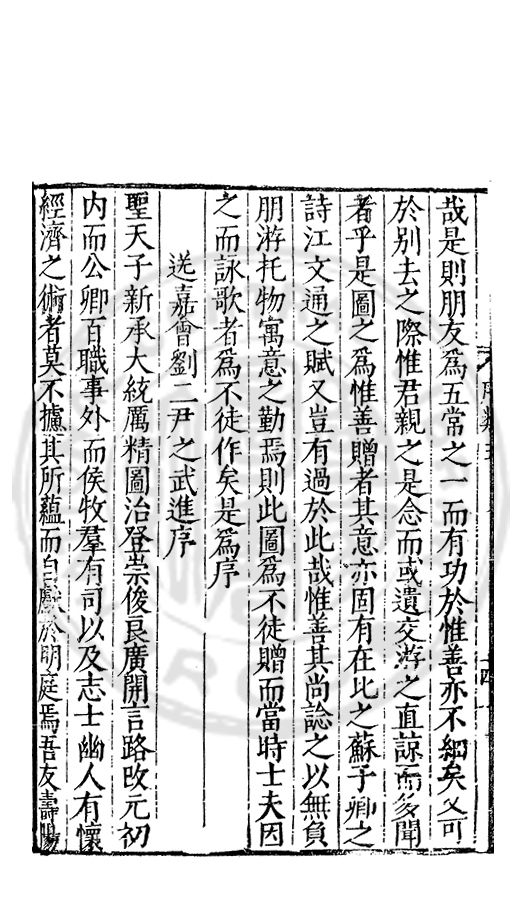 哉是則朋友爲五常之一而有功於惟善亦不細矣又可
於別去之際惟君親之是念而或遺交游之直諒而多聞
者乎是圖之爲惟善贈者其意亦固有在比之蘇子卿之
詩江文通之賦又豈有過於此哉惟善其尚諗之以無負
朋游托物寓意之勤焉則此圖爲不徒贈而當時士夫因
之而詠歌者爲不徒作矣是爲序
送嘉會劉二尹之武進序
聖天子新承大統厲精圖治登崇俊良廣開言路改元初
内而公卿百職事外而侯牧羣有司以及志士幽人有懷
經濟之術者莫不攄其所蘊而自獻於明庭焉吾友壽陽